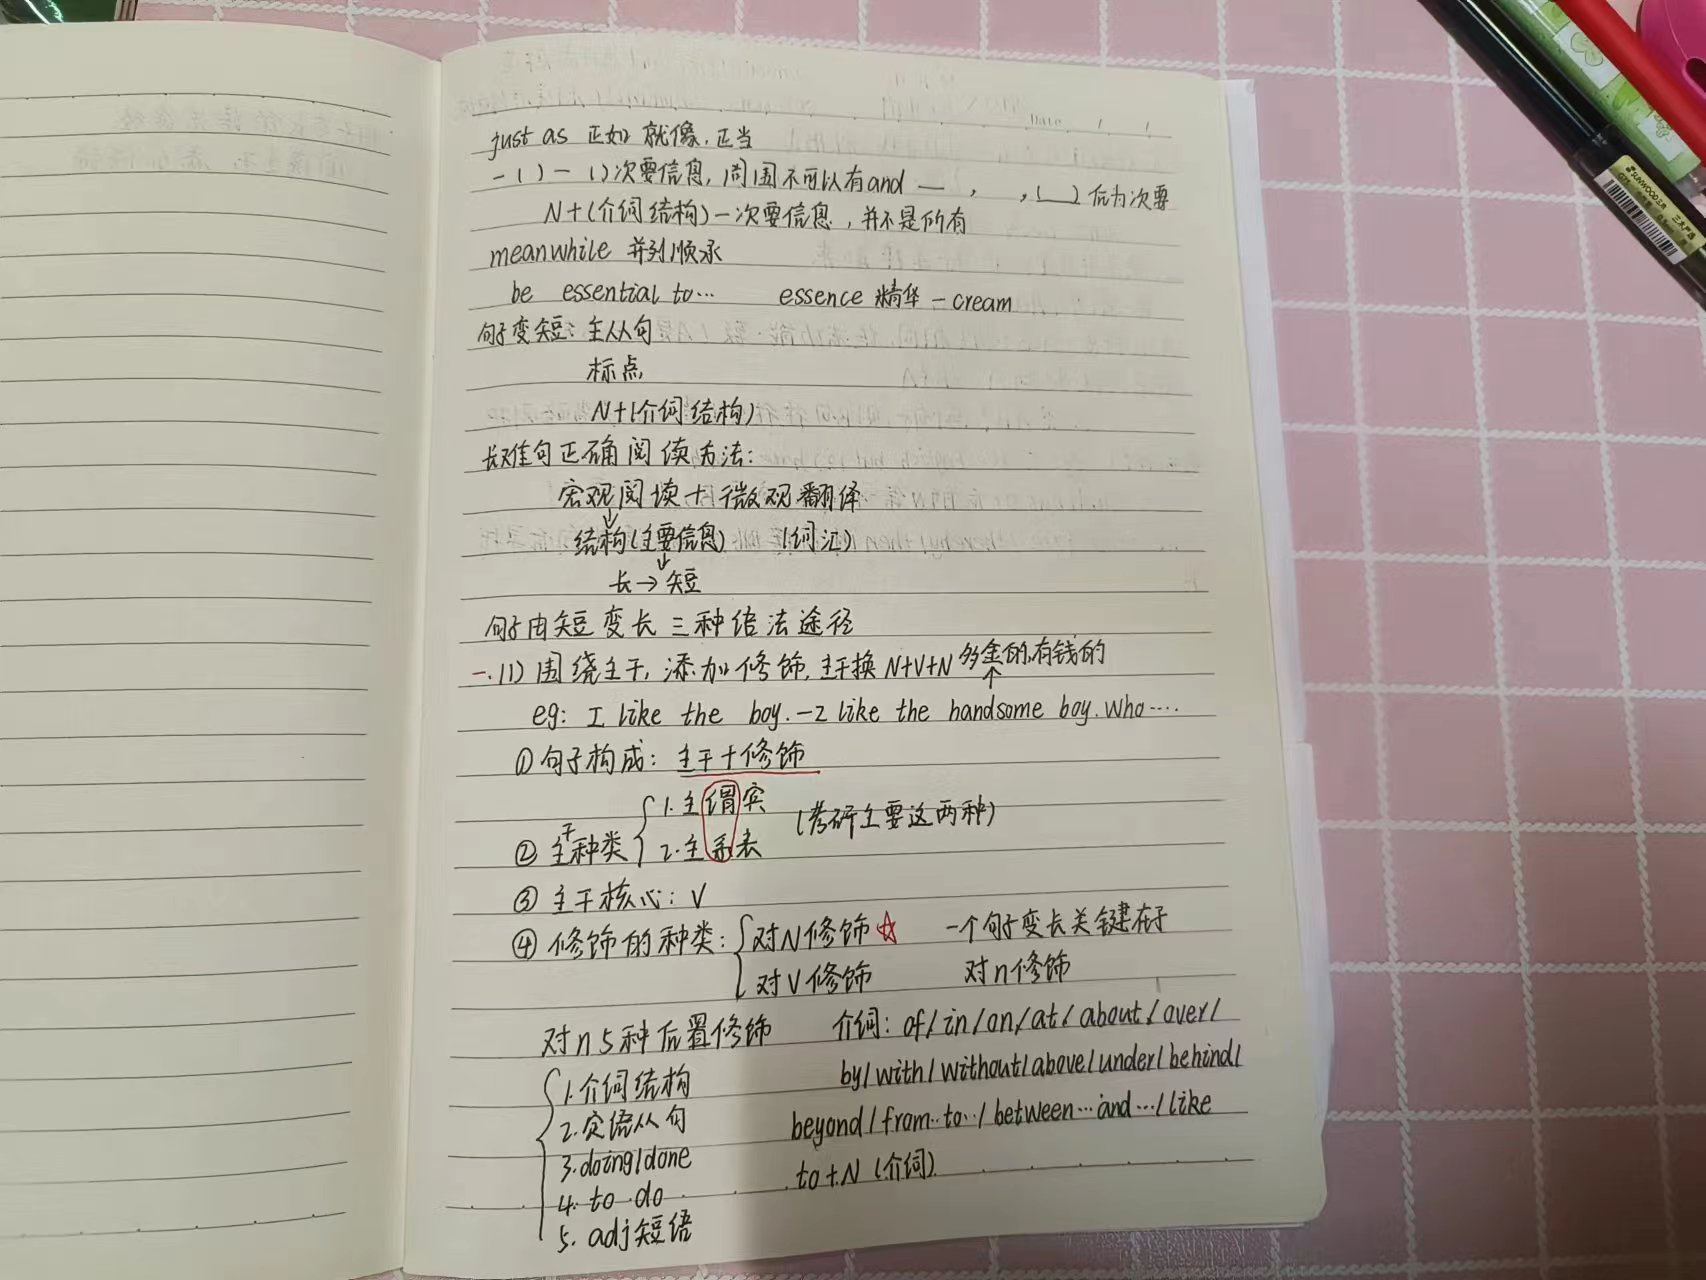 Date / /
just as 正如 就像, 正当
-( ) - ( )次要信息, 周围不可以有and — , , (__) 后为次要
N+(介词结构)-次要信息, 并不是所有
meanwhile 并列顺承
be essential to… essence 精华 - cream
句子变短: 主从句
标点
N+(介词结构)
长难句正确阅读方法:
宏观阅读+微观翻译
↓
结构(主要信息) (词汇)
↓
长→短
句子由短变长三种语法途径
一.(1) 围绕主干, 添加修饰, 主干换 N+V+N 多金的,有钱的
↑
eg: I like the boy. - I like the handsome boy. who….
①句子构成: 主干+修饰
②主干种类 { 1.主谓宾 (考研主要这两种)
2.主系表
③ 主干核心: V
④ 修饰的种类: { 对N修饰☆ 一个句子变长关键在于
对V修饰 对n修饰
对n 5种后置修饰 介词: of/in/on/at/about/over/
1.介词结构 by/with/without/above/under/behind/
2.定语从句 beyond/from..to../between…and…/like
3.doing/done to+N (介词)
4. to do
5. adj短语
SUNWOOD 三木